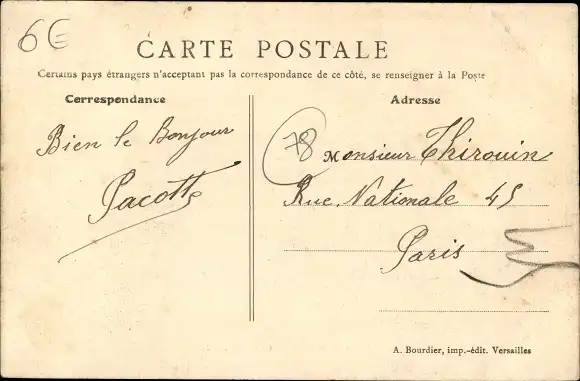 6€
CARTE POSTALE
Certains pays étrangers n'acceptant pas la correspondance de ce côté, se renseigner à la Poste
Correspondance
Adresse
Bien le Bonjour
Pacotte
78
Monsieur Thirouin
Rue Nationale 45
Paris
A. Bourdier, imp.-édit. Versailles